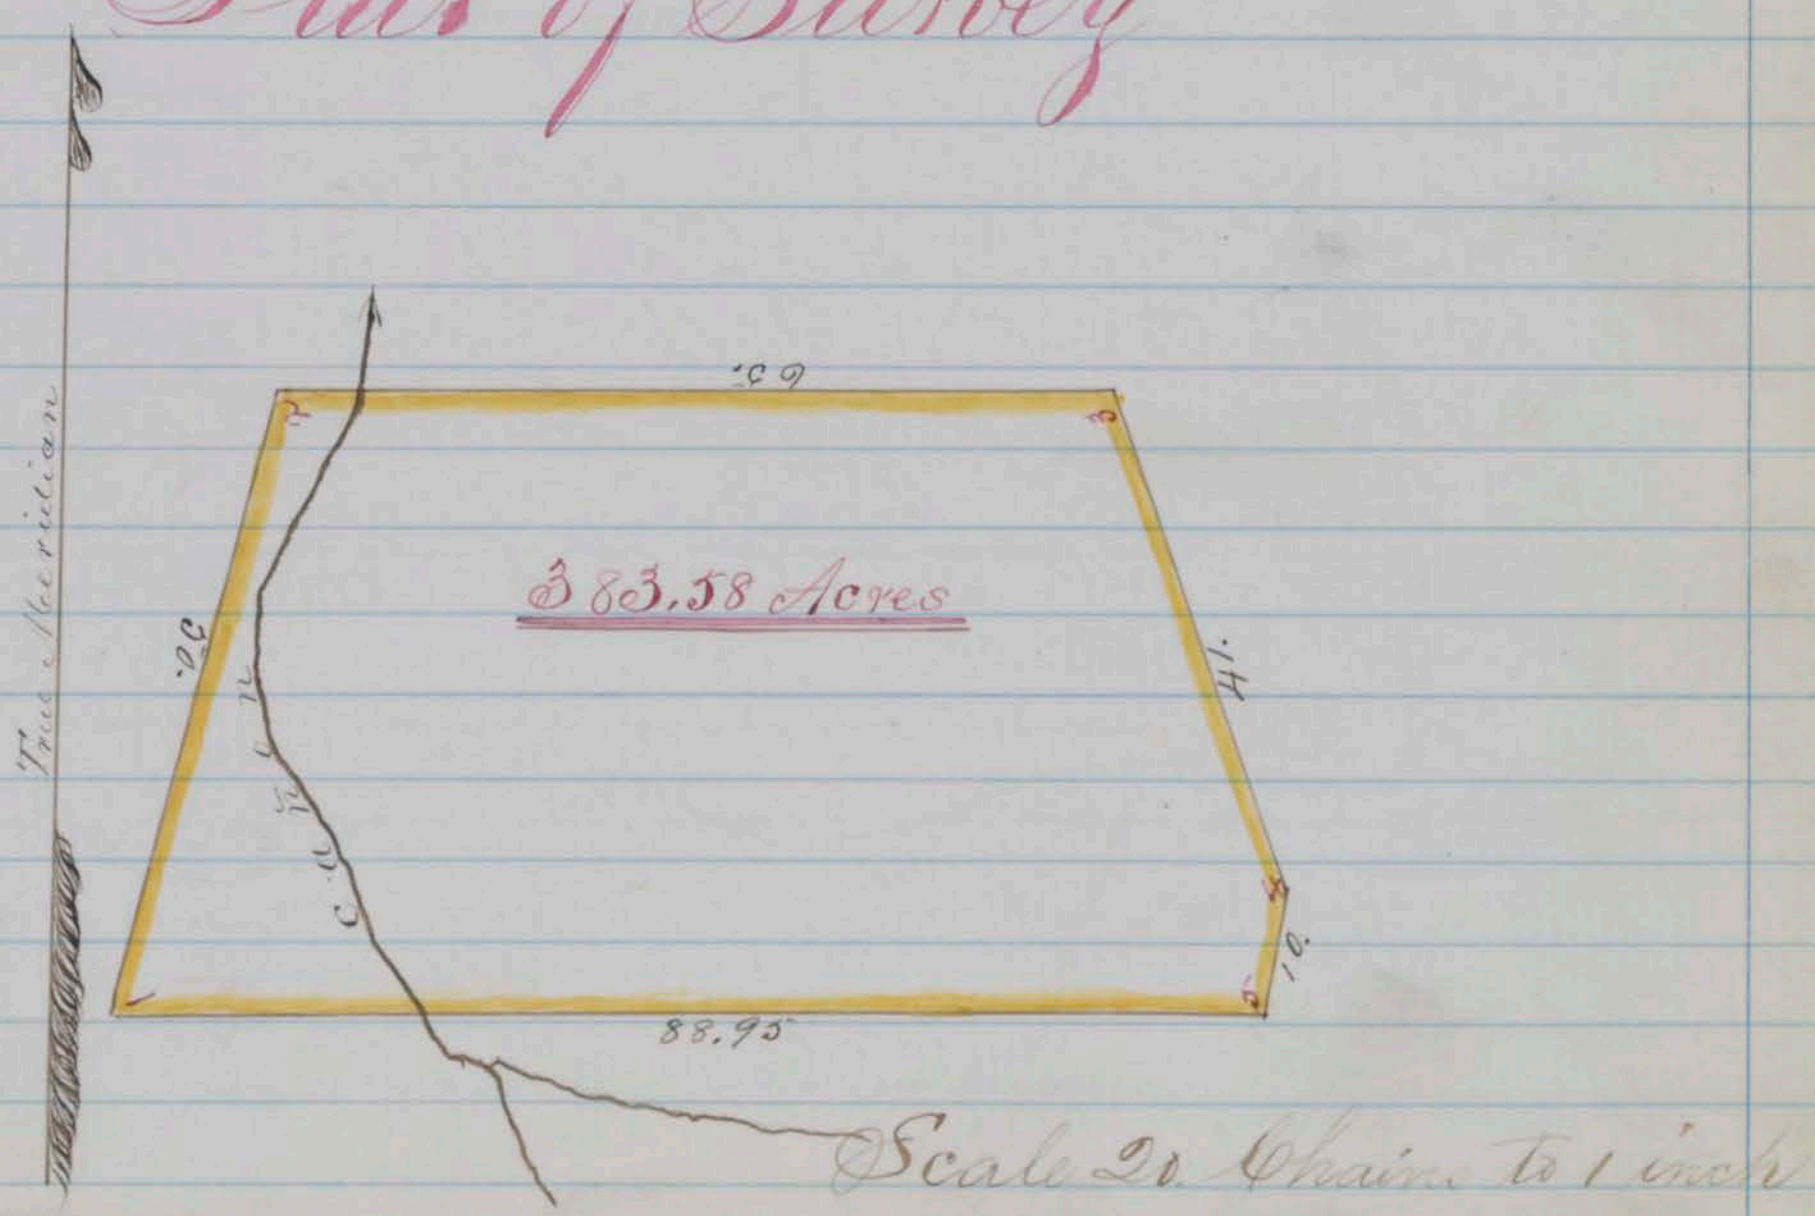 Plat of Survey
True Meridian
65.
2
3
383.58 Acres
50.
41.
Cañon
4
10.
1
5
88.95
Scale 20. Chains to 1 inch